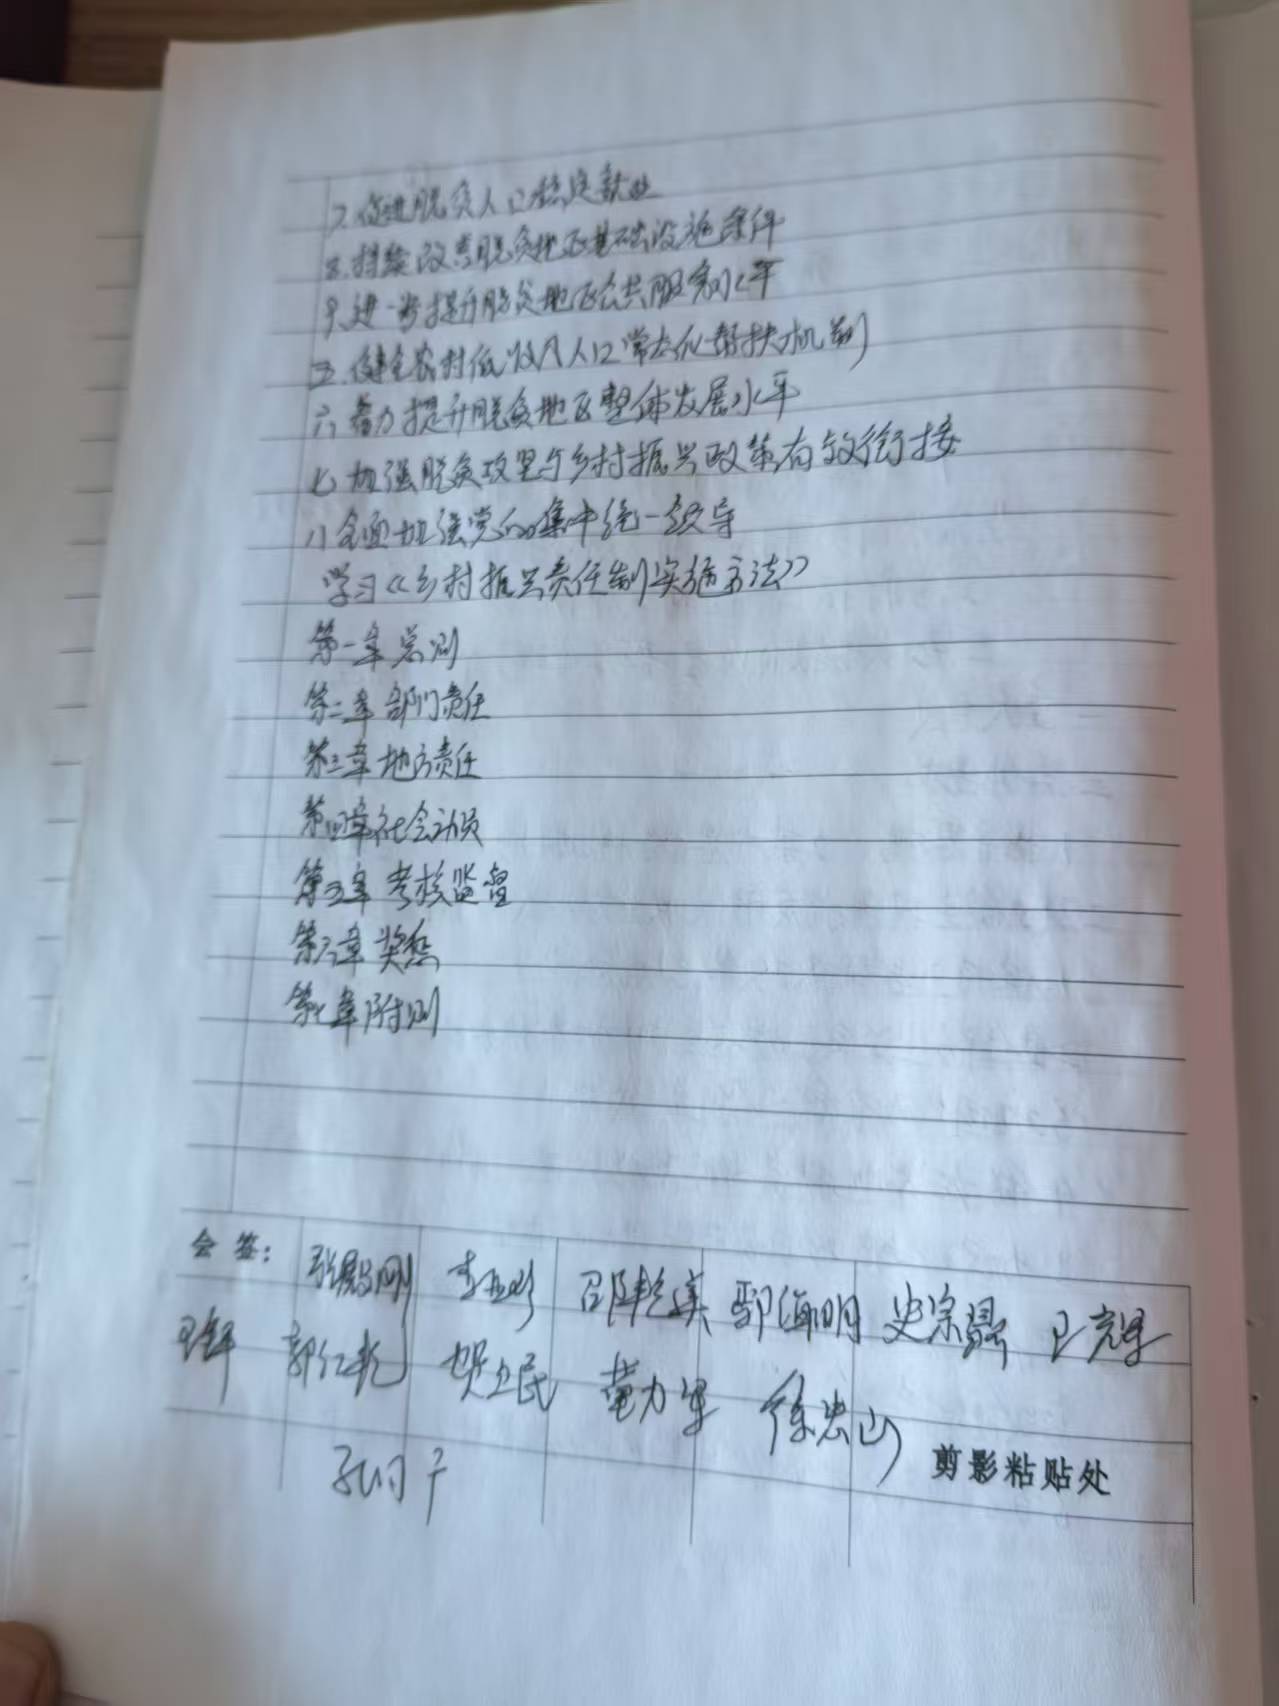 7.促进脱贫人口稳定就业
8.持续改善脱贫地区基础设施条件
9.进一步提升脱贫地区公共服务水平
五.健全农村低收入人口常态化帮扶机制
六着力提升脱贫地区整体发展水平
七加强脱贫攻坚与乡村振兴政策有效衔接
八全面加强党的集中统一领导
学习《乡村振兴责任制实施方法》
第一章总则
第二章部门责任
第三章地方责任
第四章社会动员
第五章考核监督
第六章奖惩
第七章附则
会签：
郭海明 史宗 王
郭仁乾 贺卫民 董力军 徐忠山
剪影粘贴处